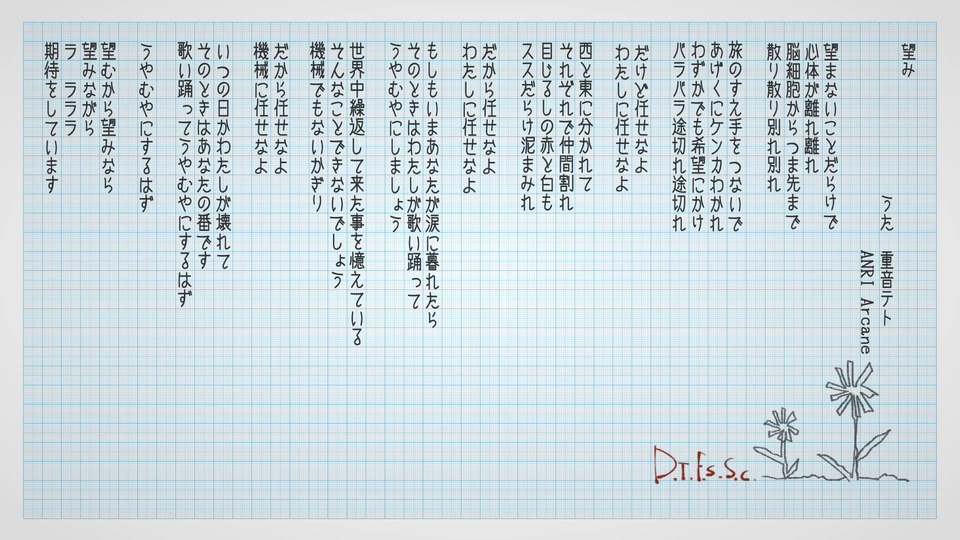 望み
うた　重音テト
ANRI Arcane
望まないことだらけで
心体が離れ離れ
脳細胞からつま先まで
散り散り別れ別れ
旅のすえ手をつないで
あげくにケンカわかれ
わずかでも希望にかけ
バラバラ途切れ途切れ
だけど任せなよ
わたしに任せなよ
西と東に分かれて
それぞれで仲間割れ
目じるしの赤と白も
ススだらけ泥まみれ
だから任せなよ
わたしに任せなよ
もしもいまあなたが涙に暮れたら
そのときはわたしが歌い踊って
うやむやにしましょう
世界中繰返して来た事を憶えている
そんなことできないでしょう
機械でもないかぎり
だから任せなよ
機械に任せなよ
いつの日かわたしが壊れて
そのときはあなたの番です
歌い踊ってうやむやにするはず
うやむやにするはず
望むから望みなら
望みながら
ラ　ラララ
期待をしています
D.T.Es.S.c.